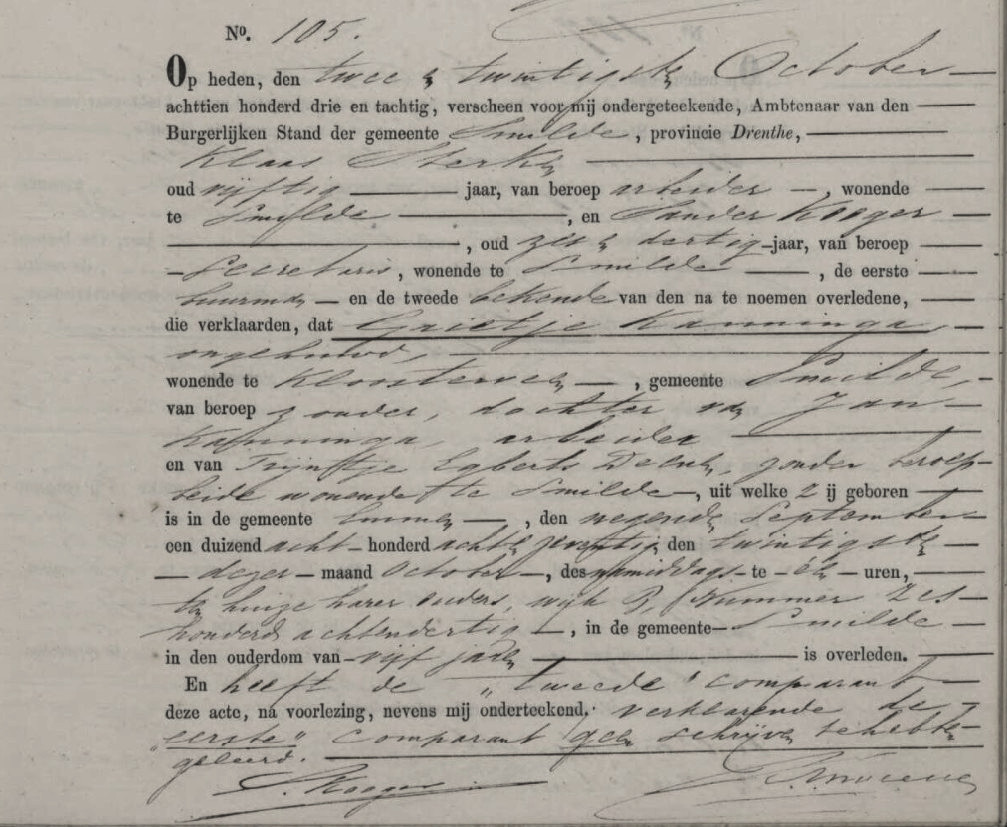 No. 105.
Op heden, den twee & twintigste October
achttien honderd drie en tachtig, verscheen voor mij ondergeteekende, Ambtenaar van den
Burgerlijken Stand der gemeente Smilde, provincie Drenthe,
Klaas Sterken
oud vijftig jaar, van beroep arbeider, wonende
te Smilde, en Sander Kooger
, oud zes & dertig jaar, van beroep
Secretaris, wonende te Smilde, de eerste
buurman en de tweede bekende van den na te noemen overledene,
die verklaarden, dat Grietje Kamminga,
ongehuwd,
wonende te Kloosterveen, gemeente Smilde,
van beroep zonder, dochter van Jan
Kamminga, arbeider
en van Trijntje Egberts, zonder beroep
beide wonende te Smilde, uit welke zij geboren
is in de gemeente Emmen, den negenden September
een duizend acht honderd acht & zeventig den twintigste
dezer maand October, des namiddags te één uren,
ten huize harer ouders, wijk B, Nummer zes
honderd achtendertig, in de gemeente Smilde
in den ouderdom van vijf jaren is overleden.
En heeft de "tweede" comparant
deze acte, na voorlezing, nevens mij onderteekend. verklarende de
"eerste" comparant geen schrijven te hebben
geleerd.
S. Kooger